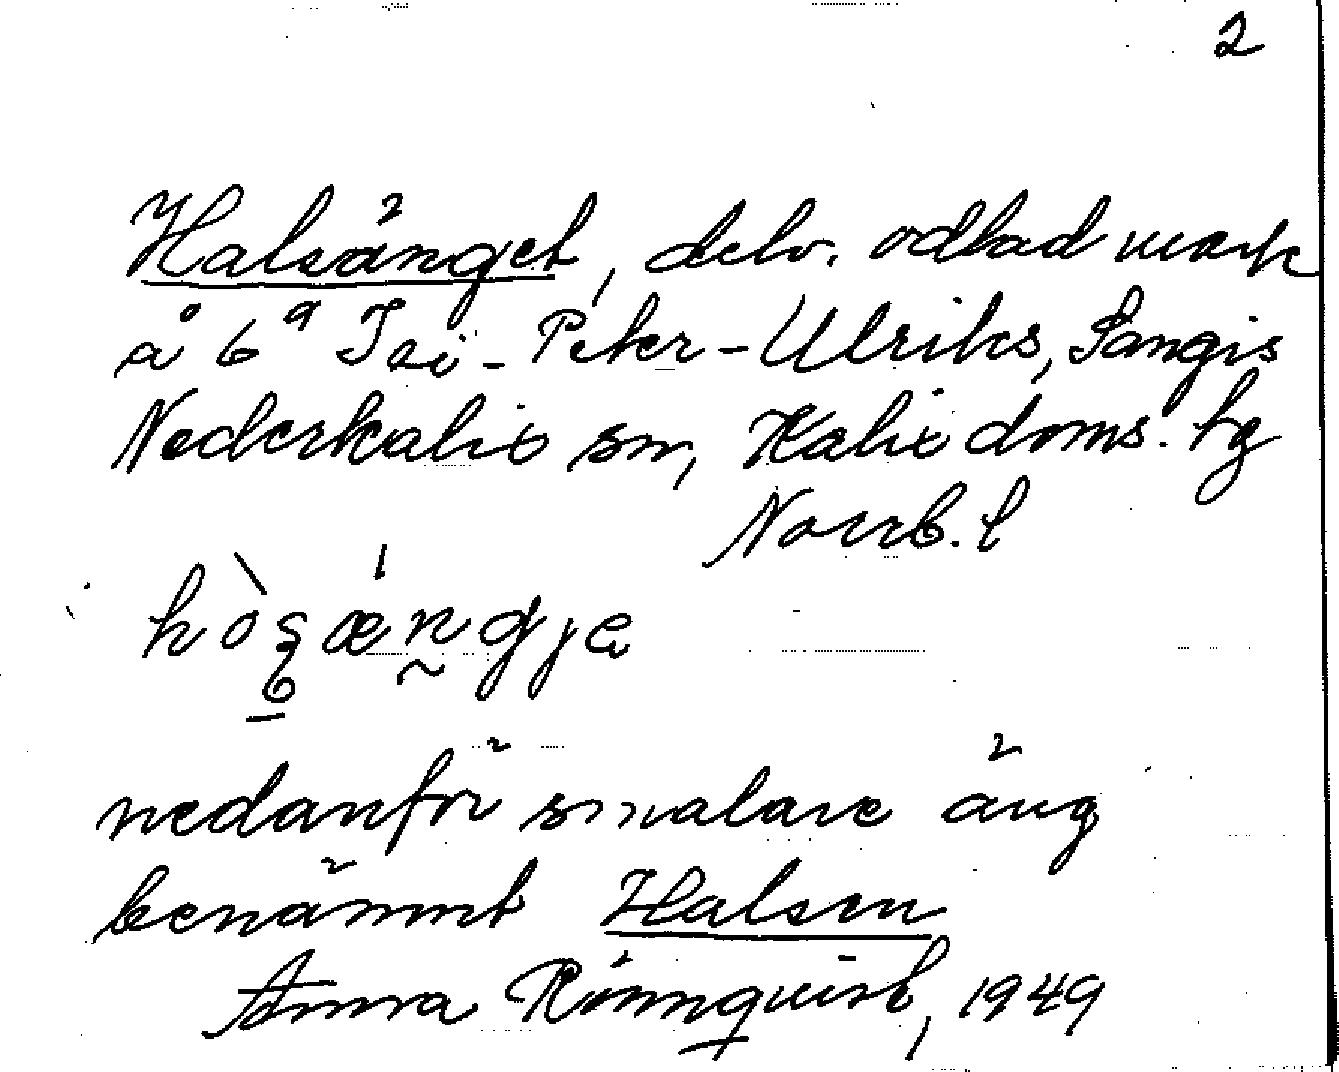 2
Halsänget, delv. odlad mark
å 6⁹ Isi-Peter-Ulriks, Sangis
Nederkalix sn, Kalix doms. tg
Norrb. l
nedanför smalare äng
benämnt Halsen
Anna Rönnquist, 1949